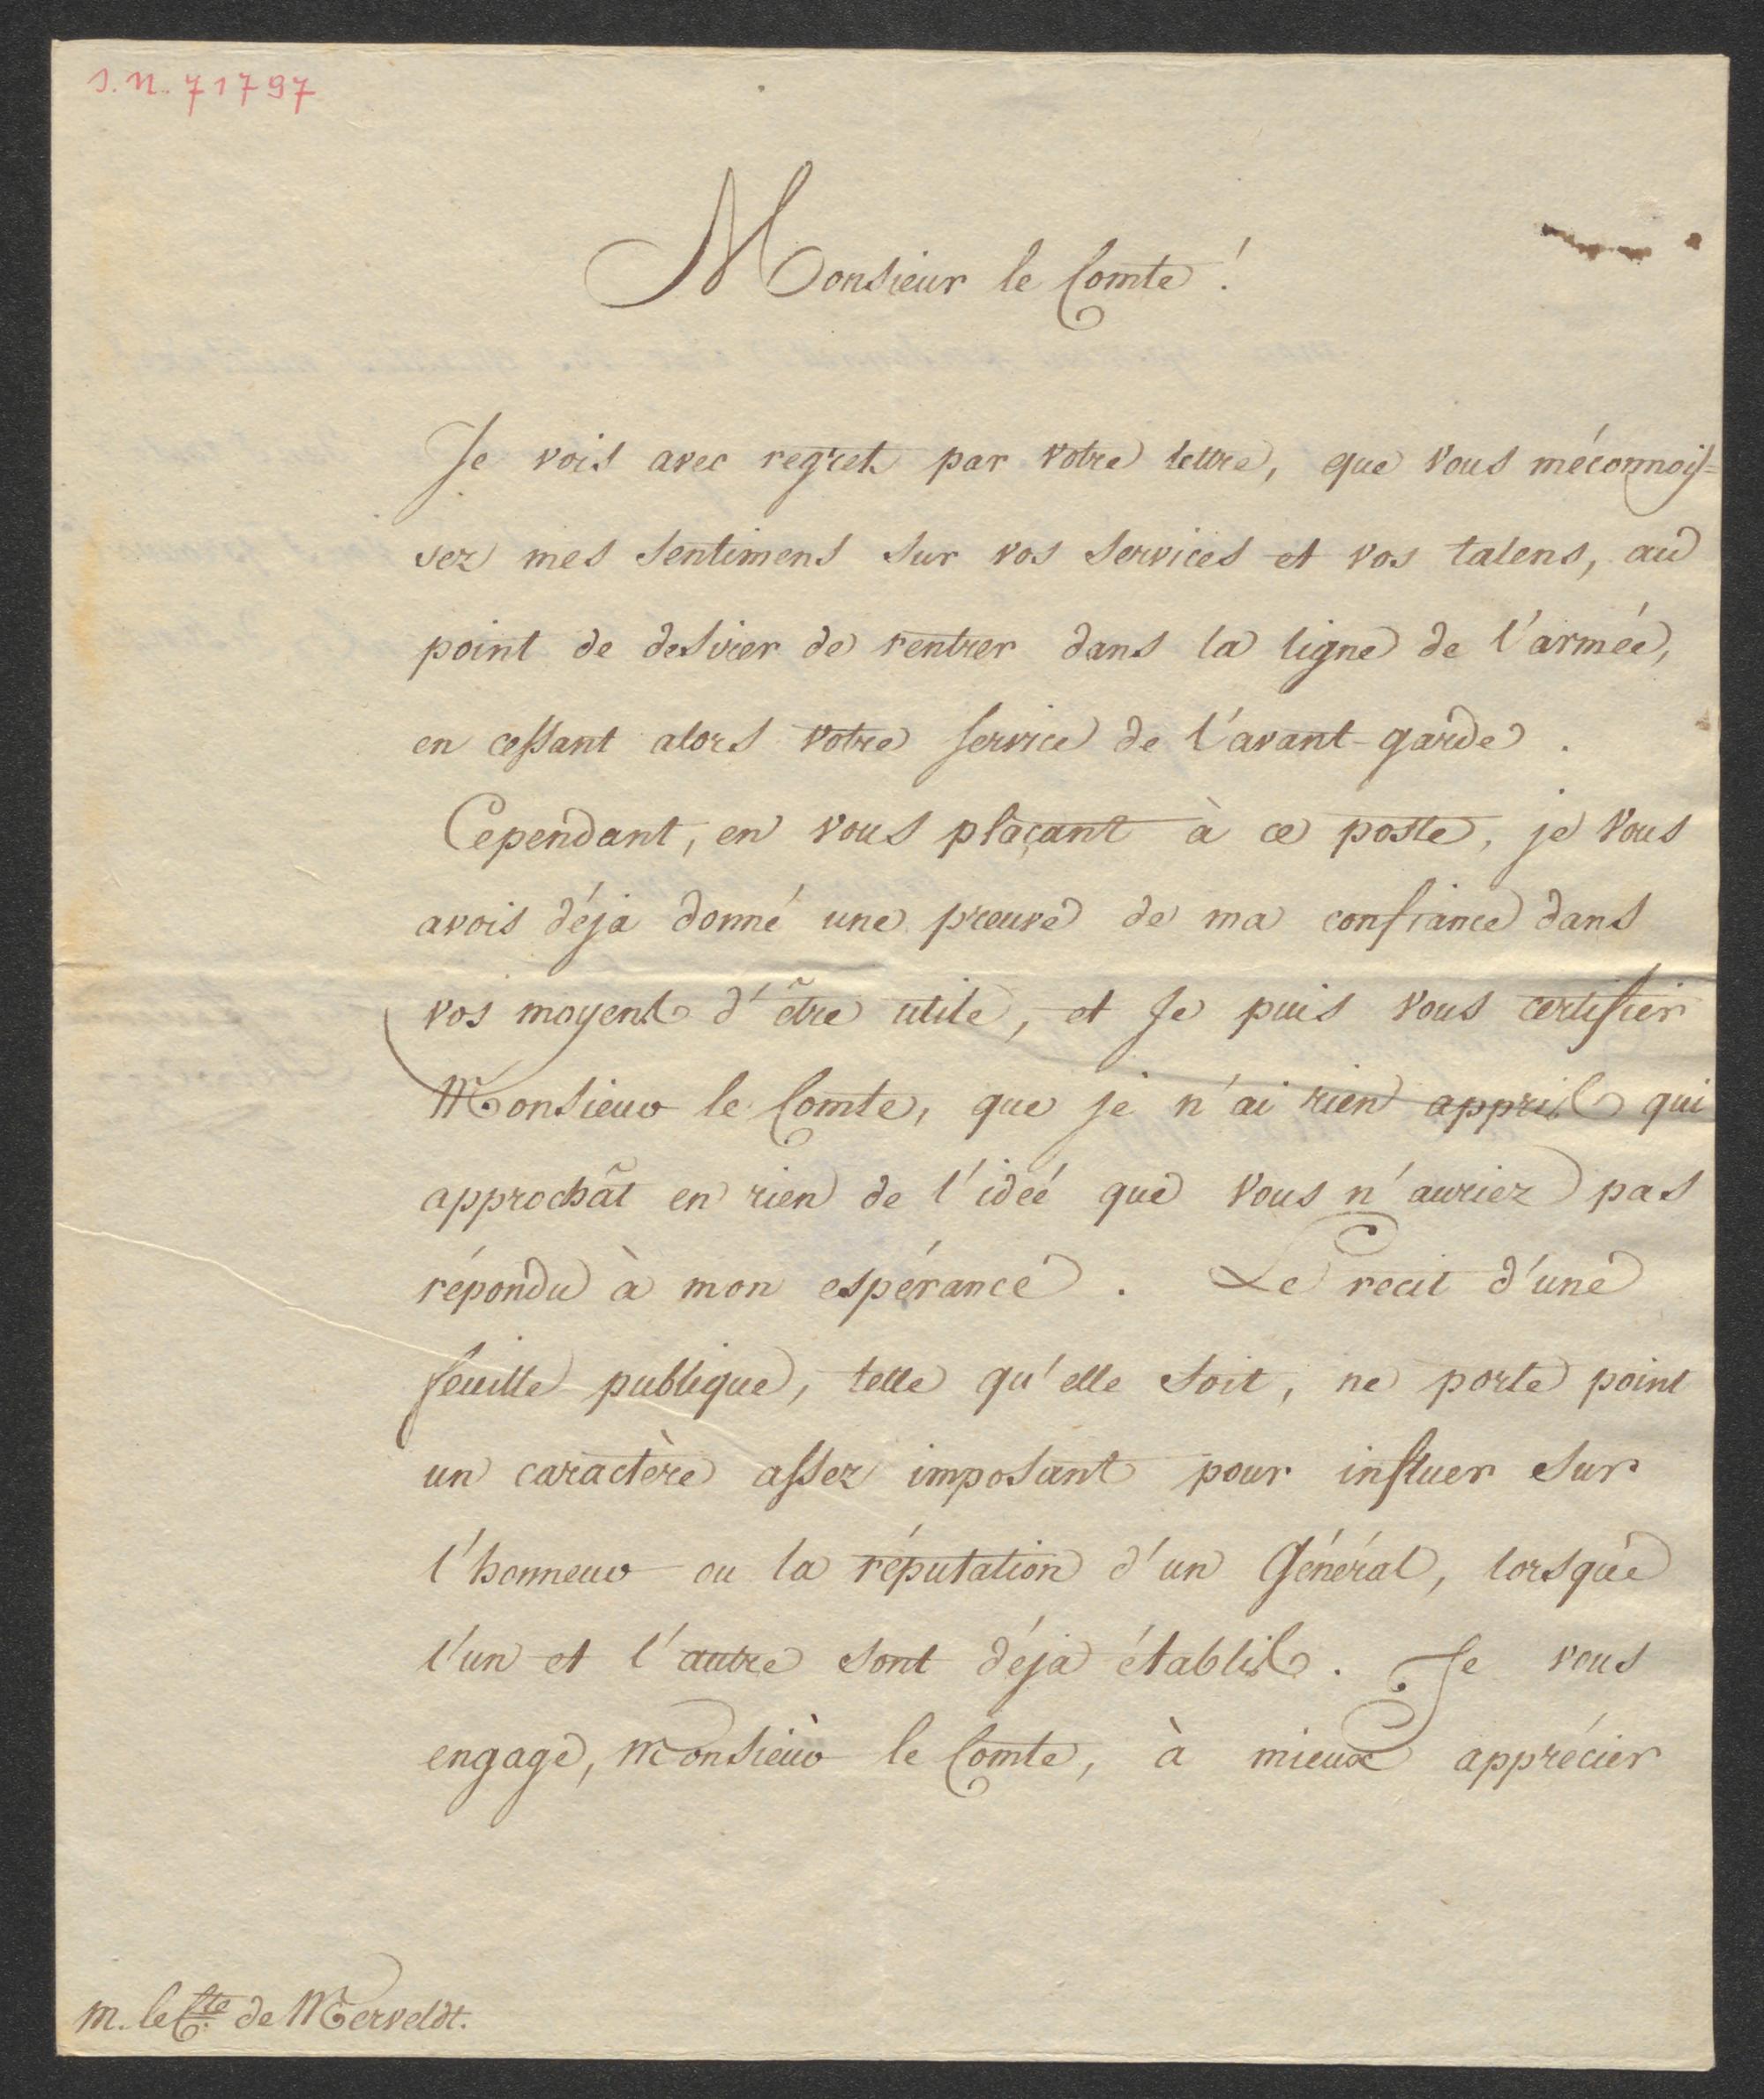 J.N. 71797
Monsieur le Comte!
Je vois avec regret par votre lettre, que vous méconnois=
sez mes sentimens sur vos services et vos talens, au
point de desirer de rentrer dans la ligne de l'armée,
en cessant alors votre service de l'avant-garde.
Cependant, en vous plaçant à ce poste, je vous
avois déja donné une preuve de ma confiance dans
vos moyens d'être utile, et Je puis vous certifier
Monsieur le Comte, que je n'ai rien appris qui
approchât en rien de l'ideé que vous n'auriez pas
répondu à mon espérance. Le recit d'une
feuille publique, telle qu'elle soit, ne porte point
un caractère assez imposant pour influer sur
l'honneur ou la réputation d'un Général, lorsque
l'un et l'autre sont déja établis. Je vous
engage, Monsieur le Comte, à mieux apprécier
M. le Cte de Merveldt.